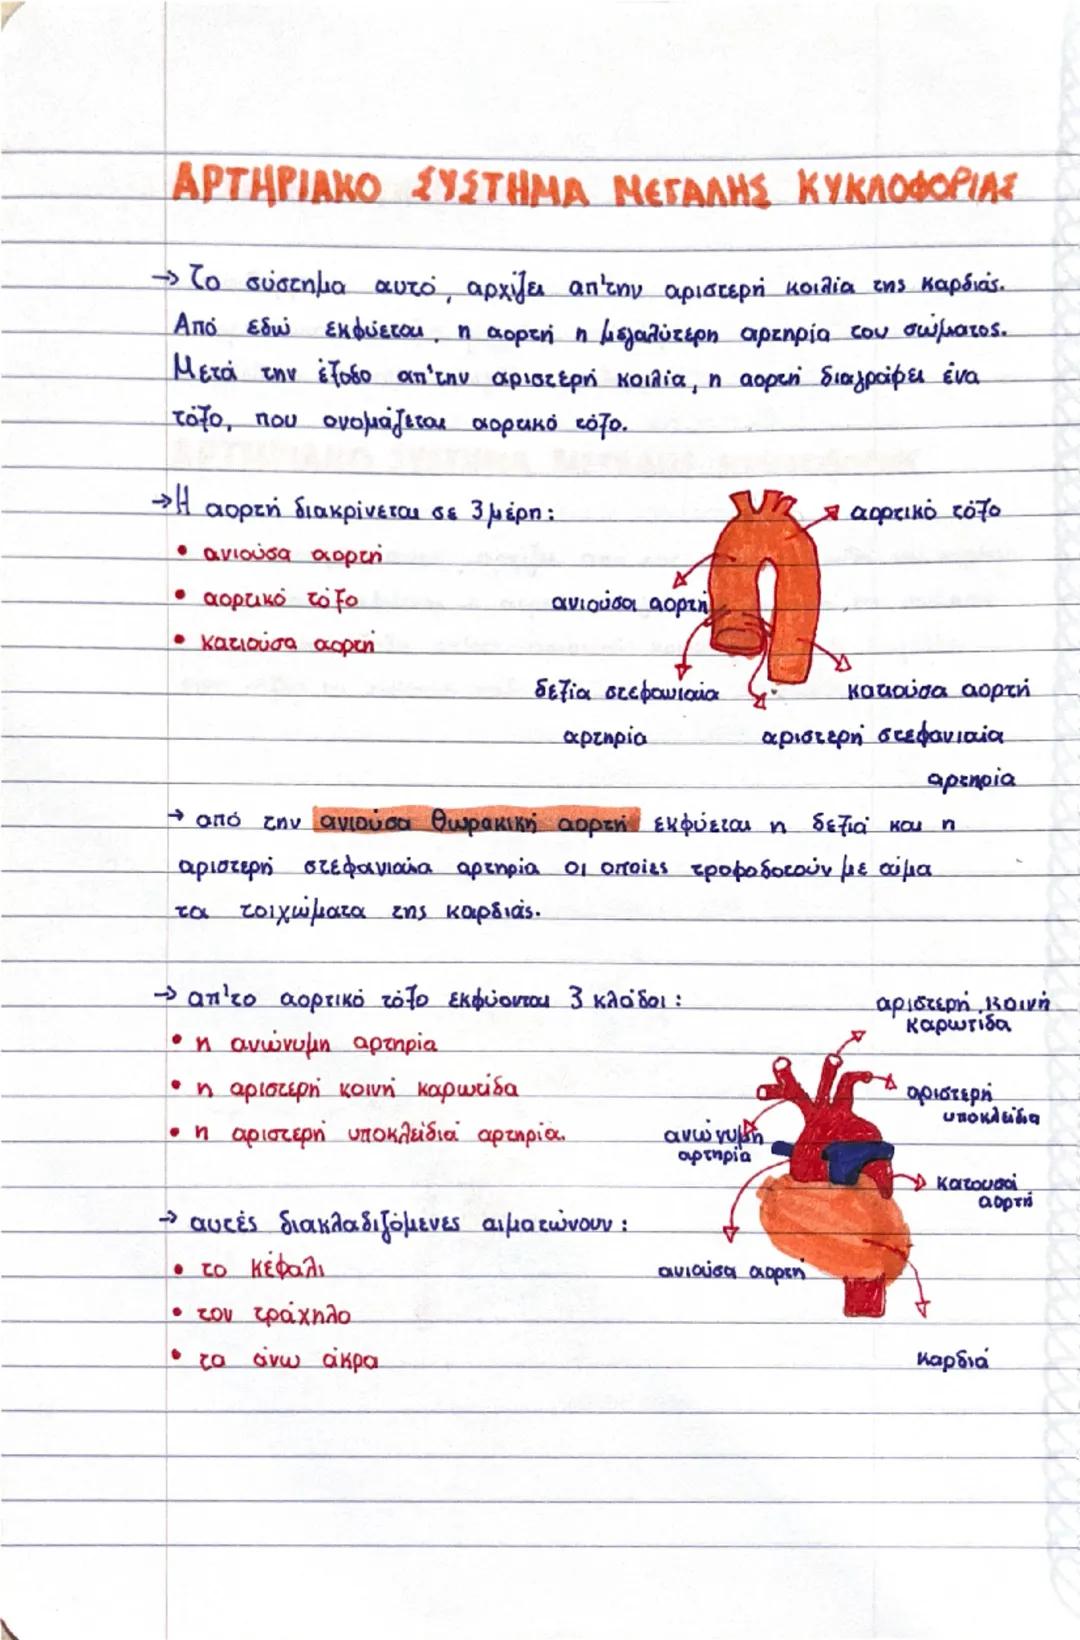 ΑΡΤΗΡΙΑΚΟ ΣΥΣΤΗΜΑ ΜΕΓΑΛΗΣ ΚΥΚΛΟΦΟΡΙΑΣ
→ Το σύστημα αυτό, αρχίζει απ'την αριστερή κοιλία της καρδιάς.
Από εδώ εκφύεται, η αορτή η μεγαλύτερη αρτηρία του σώματος.
Μετά την έξοδο απ'την αριστερή κοιλία, η αορτή διαγράφει ένα
τόξο, που ονομάζεται αορτικό τόξο.
→ Η αορτή διακρίνεται σε 3 μέρη:
• ανιούσα αορτή
• αορτικό τόξο
• κατιούσα αορτή
αορτικό τόξο
ανιούσα αορτή
δεξία στεφανιαία
αρτηρία
κατιούσα αορτή
αριστερή στεφανιαία
αρτηρία
→ από την ανιούσα θωρακική αορτή εκφύεται η δεξιά και η
αριστερή στεφανιαία αρτηρία οι οποίες τροφοδοτούν με αίμα
τα τοιχώματα της καρδιάς.
→ απ'το αορτικό τόξο εκφύονται 3 κλάδοι:
• η ανώνυμη αρτηρία
• η αριστερή κοινή καρωτίδα
• η αριστερή υποκλείδια αρτηρία.
αριστερή κοινή
καρωτίδα
αριστερή
υποκλείδια
ανώνυμη
αρτηρία
κατουσά
αορτή
ανιούσα αορτή
καρδιά
→ αυτές διακλαδιζόμενες αιματώνουν:
• το κέφαλι
• τον τράχηλο
• τα άνω άκρα